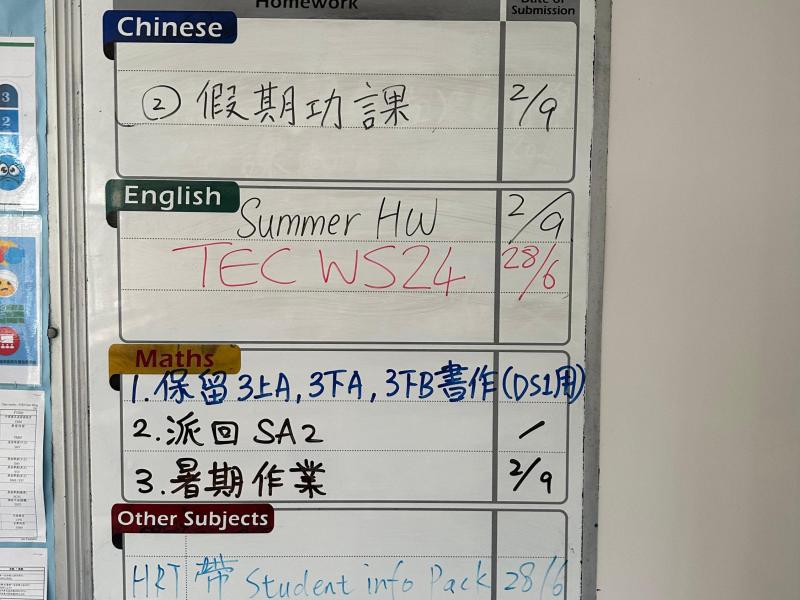 Homework
Date of
Submission
Chinese
② 假期功課 2/9
English
Summer HW 2/9
TEC WS24 28/6
Maths
1. 保留3上A, 3下A, 3下B書作(DS1用)
2. 派回 SA2 /
3. 暑期作業 2/9
Other Subjects
HRT 帶 Student info Pack 28/6
3
2